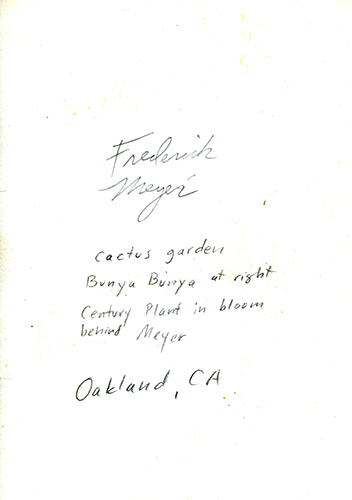 Frederick
Meyer
cactus garden
Bunya Bunya at right
Century Plant in bloom
behind Meyer
Oakland, CA